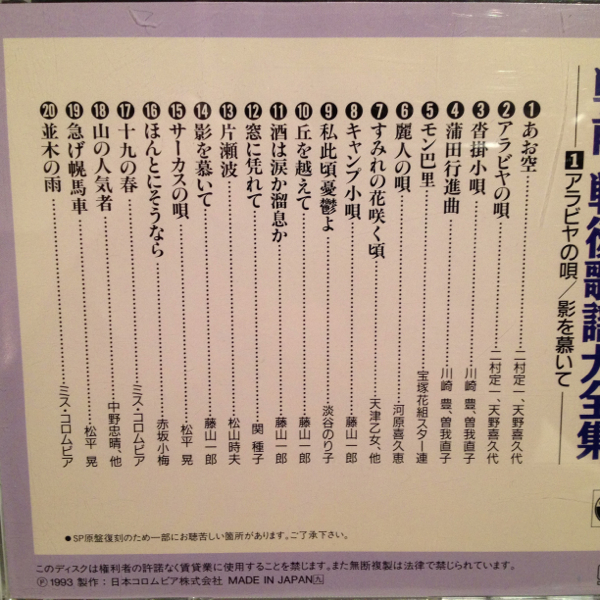 戦後歌謡大全集
1アラビヤの唄／影を慕いて
❶あお空 二村定一、天野喜久代
❷アラビヤの唄 二村定一、天野喜久代
❸沓掛小唄 川崎 豊、曽我直子
❹蒲田行進曲 川崎 豊、曽我直子
❺モン巴里 宝塚花組スター連
❻麗人の唄 河原喜久恵
❼すみれの花咲く頃 天津乙女、他
❽キャンプ小唄 藤山一郎
❾私此頃憂鬱よ 淡谷のり子
❿丘を越えて 藤山一郎
⓫酒は涙か溜息か 藤山一郎
⓬窓に凭れて 関 種子
⓭片瀬波 松山時夫
⓮影を慕いて 藤山一郎
⓯サーカスの唄 松平 晃
⓰ほんとにそうなら 赤坂小梅
⓱十九の春 ミス・コロムビア
⓲山の人気者 中野忠晴、他
⓳急げ幌馬車 松平 晃
⓴並木の雨 ミス・コロムビア
●SP原盤復刻のため一部にお聴苦しい箇所があります。ご了承下さい。
このディスクは権利者の許諾なく賃貸業に使用することを禁じます。また無断複製は法律で禁じられています。
Ⓟ1993 製作：日本コロムビア株式会社 MADE IN JAPAN